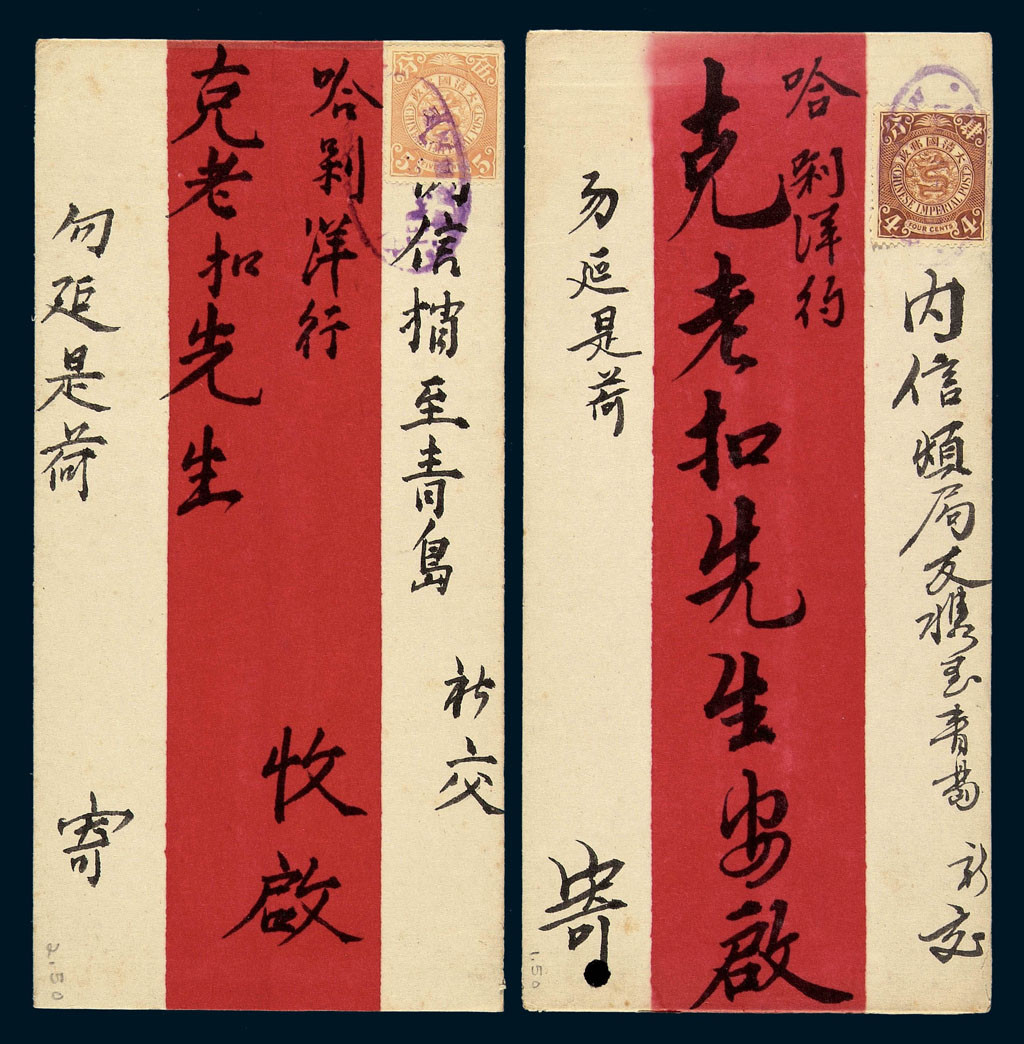 內信捎至青島 祈交
哈剥洋行
克老扣先生 收啟
勿延是荷 寄
伍 分
大清國郵政
5 5
2.50
內信煩局友携至青島 祈交
哈剥洋行
克老扣先生安啟
勿延是荷 寄
肆 分
大清國郵政
CHINESE IMPERIAL POST
4 4
FOUR CENTS
1.50